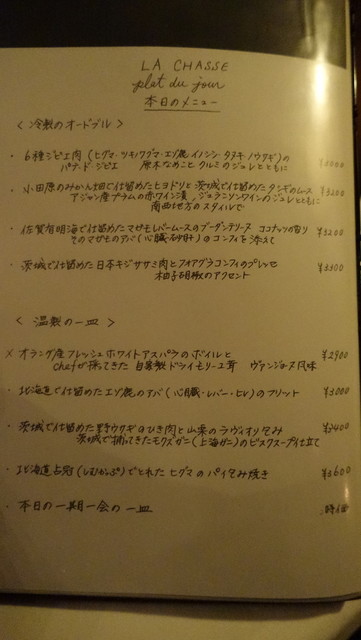 LA CHASSE
plat du jour
本日のメニュー
< 冷製のオードブル >
・ 6種ジビエ肉 (ヒグマ・ツキノワグマ・エゾ鹿・イノシシ・タヌキ・ノウサギ)の
パテ・ド・ジビエ 原木なめこと クルミのジュレとともに ¥3000
・ 小田原のみかん畑で仕留めたヒヨドリと茨城で仕留めたタシギのムース ¥3200
アジャン産プラムの赤ワイン漬 ジュランソンワインのジュレとともに
南西地方のスタイルで
・ 佐賀有明海で仕留めたマガモレバームースのブーダンテリーヌ ココナッツの香り ¥3200
そのマガモのアバ(心臓・砂肝)のコンフィを添えて
・ 茨城で仕留めた日本キジササミ肉とフォアグラコンフィのプレッセ ¥3300
柚子胡椒のアクセント
< 温製の一皿 >
× オランダ産フレッシュホワイトアスパラのボイルと ¥2900
chefが採ってきた自家製ドライモリーユ茸 ヴァンジョーヌ風味
・ 北海道で仕留めたエゾ鹿のアバ(心臓・レバー・ヒレ)のフリット ¥3000
・ 茨城で仕留めた野ウサギのひき肉と山菜のラヴィオリ包み ¥2400
茨城で捕ってきたモクズガニ(上海ガニ)のビスクスープ仕立て
・ 北海道占冠(しむかっぷ)でとれたヒグマのパイ包み焼き ¥3600
・ 本日の一期一会の一皿 時価